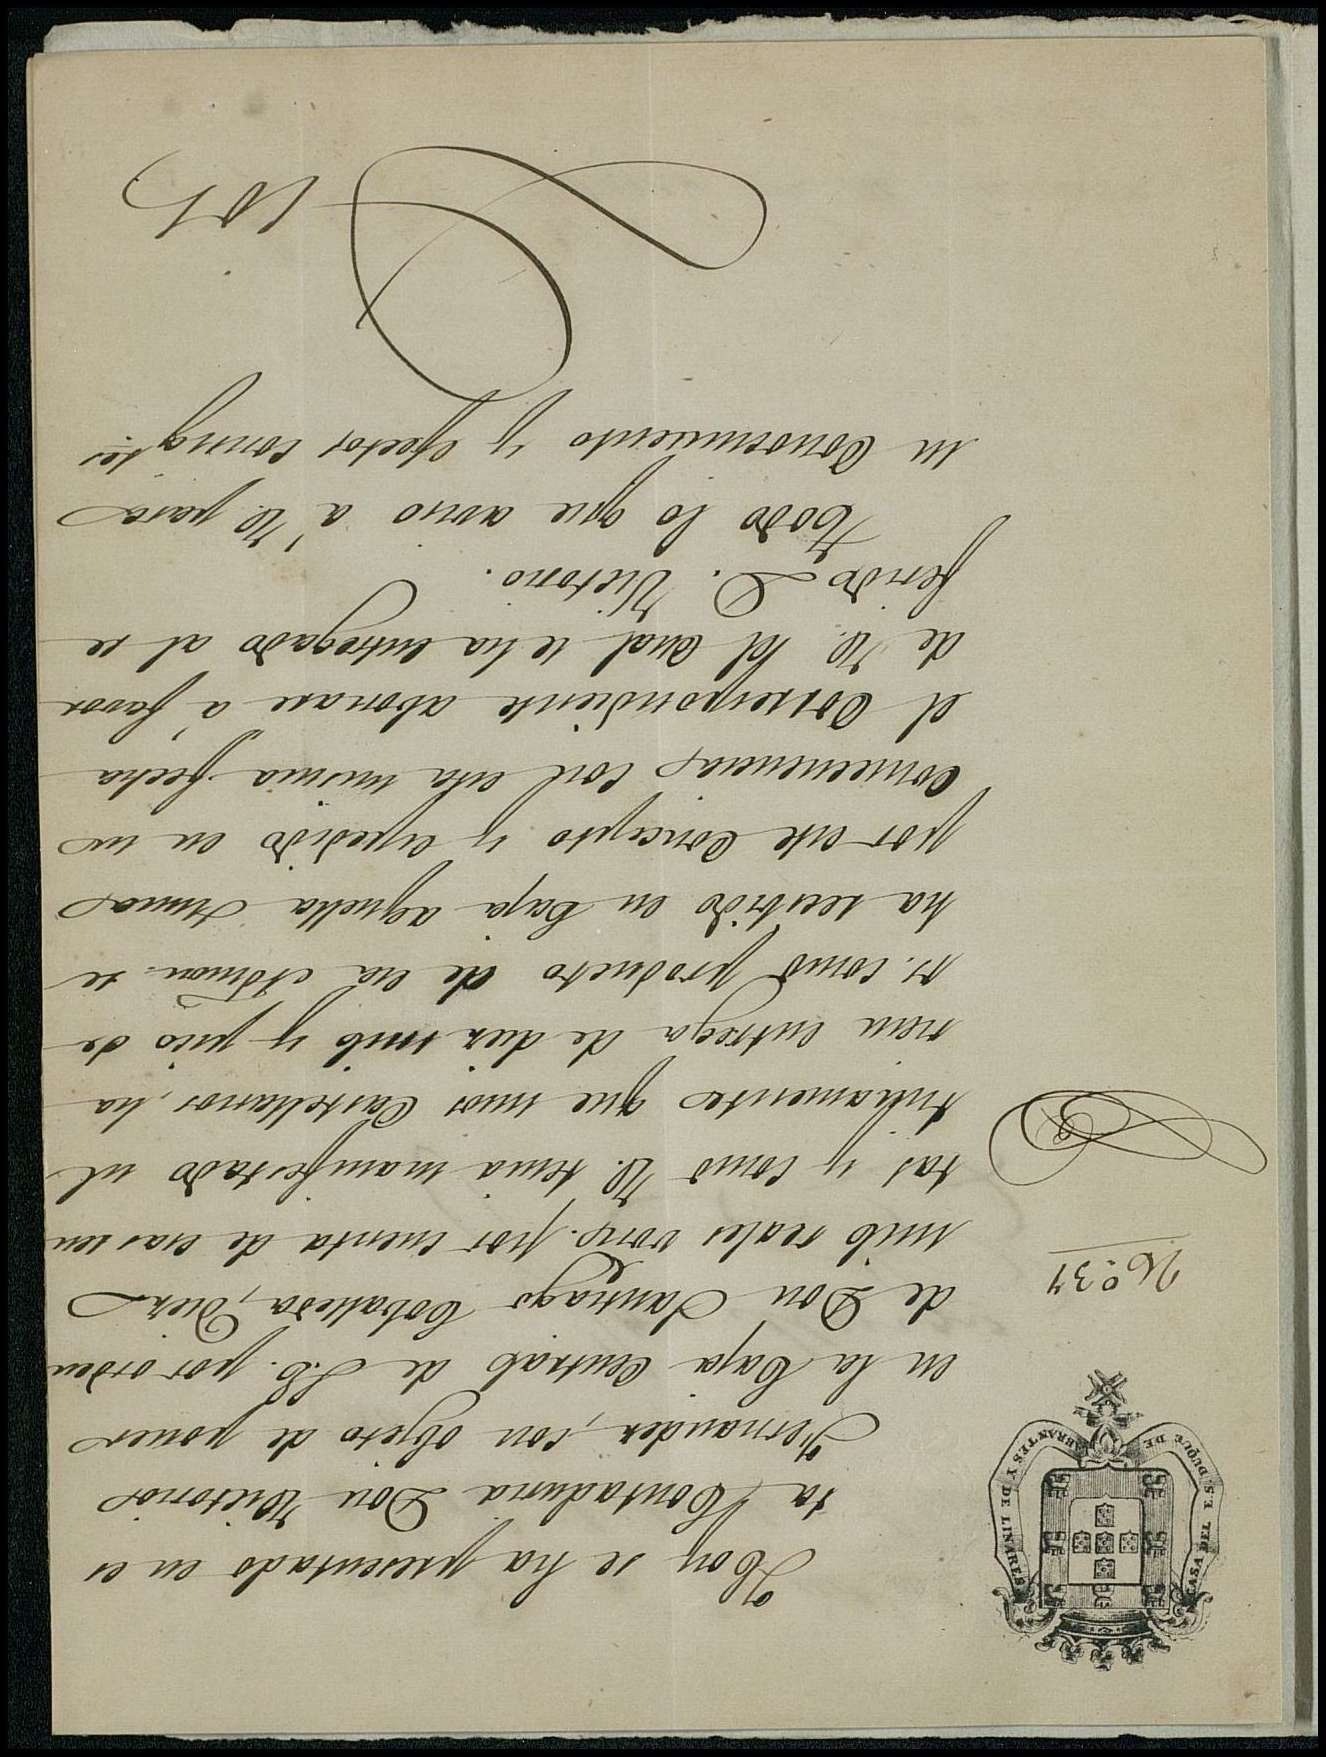 CASA DEL E.S. DUQUE DE ABRANTES Y DE LINARES
Nº. 37
Hoy se ha presentado en es
ta Contaduria Don Victorio
Fernandez, con objeto de poner
en la Caja Central de S.E. por orden
de Don Santiago Cobaleda, Diez
mil reales von. por cuenta de esas ren
tas y como V. tenia manifestado ul
timamente que mios Castellanos, ha
rian entrega de diez mil y pico de
rs. como producto de esa Admon. se
ha recibido en Caja aquella suma
por este concepto y expedido en su
consecuencia, con esta misma fecha
el Correspondiente abonare á favor
de V. el cual se ha entregado al re
ferido D. Victorio.
Todo lo que aviso á V. para
su Conocimiento y efectos consigtes